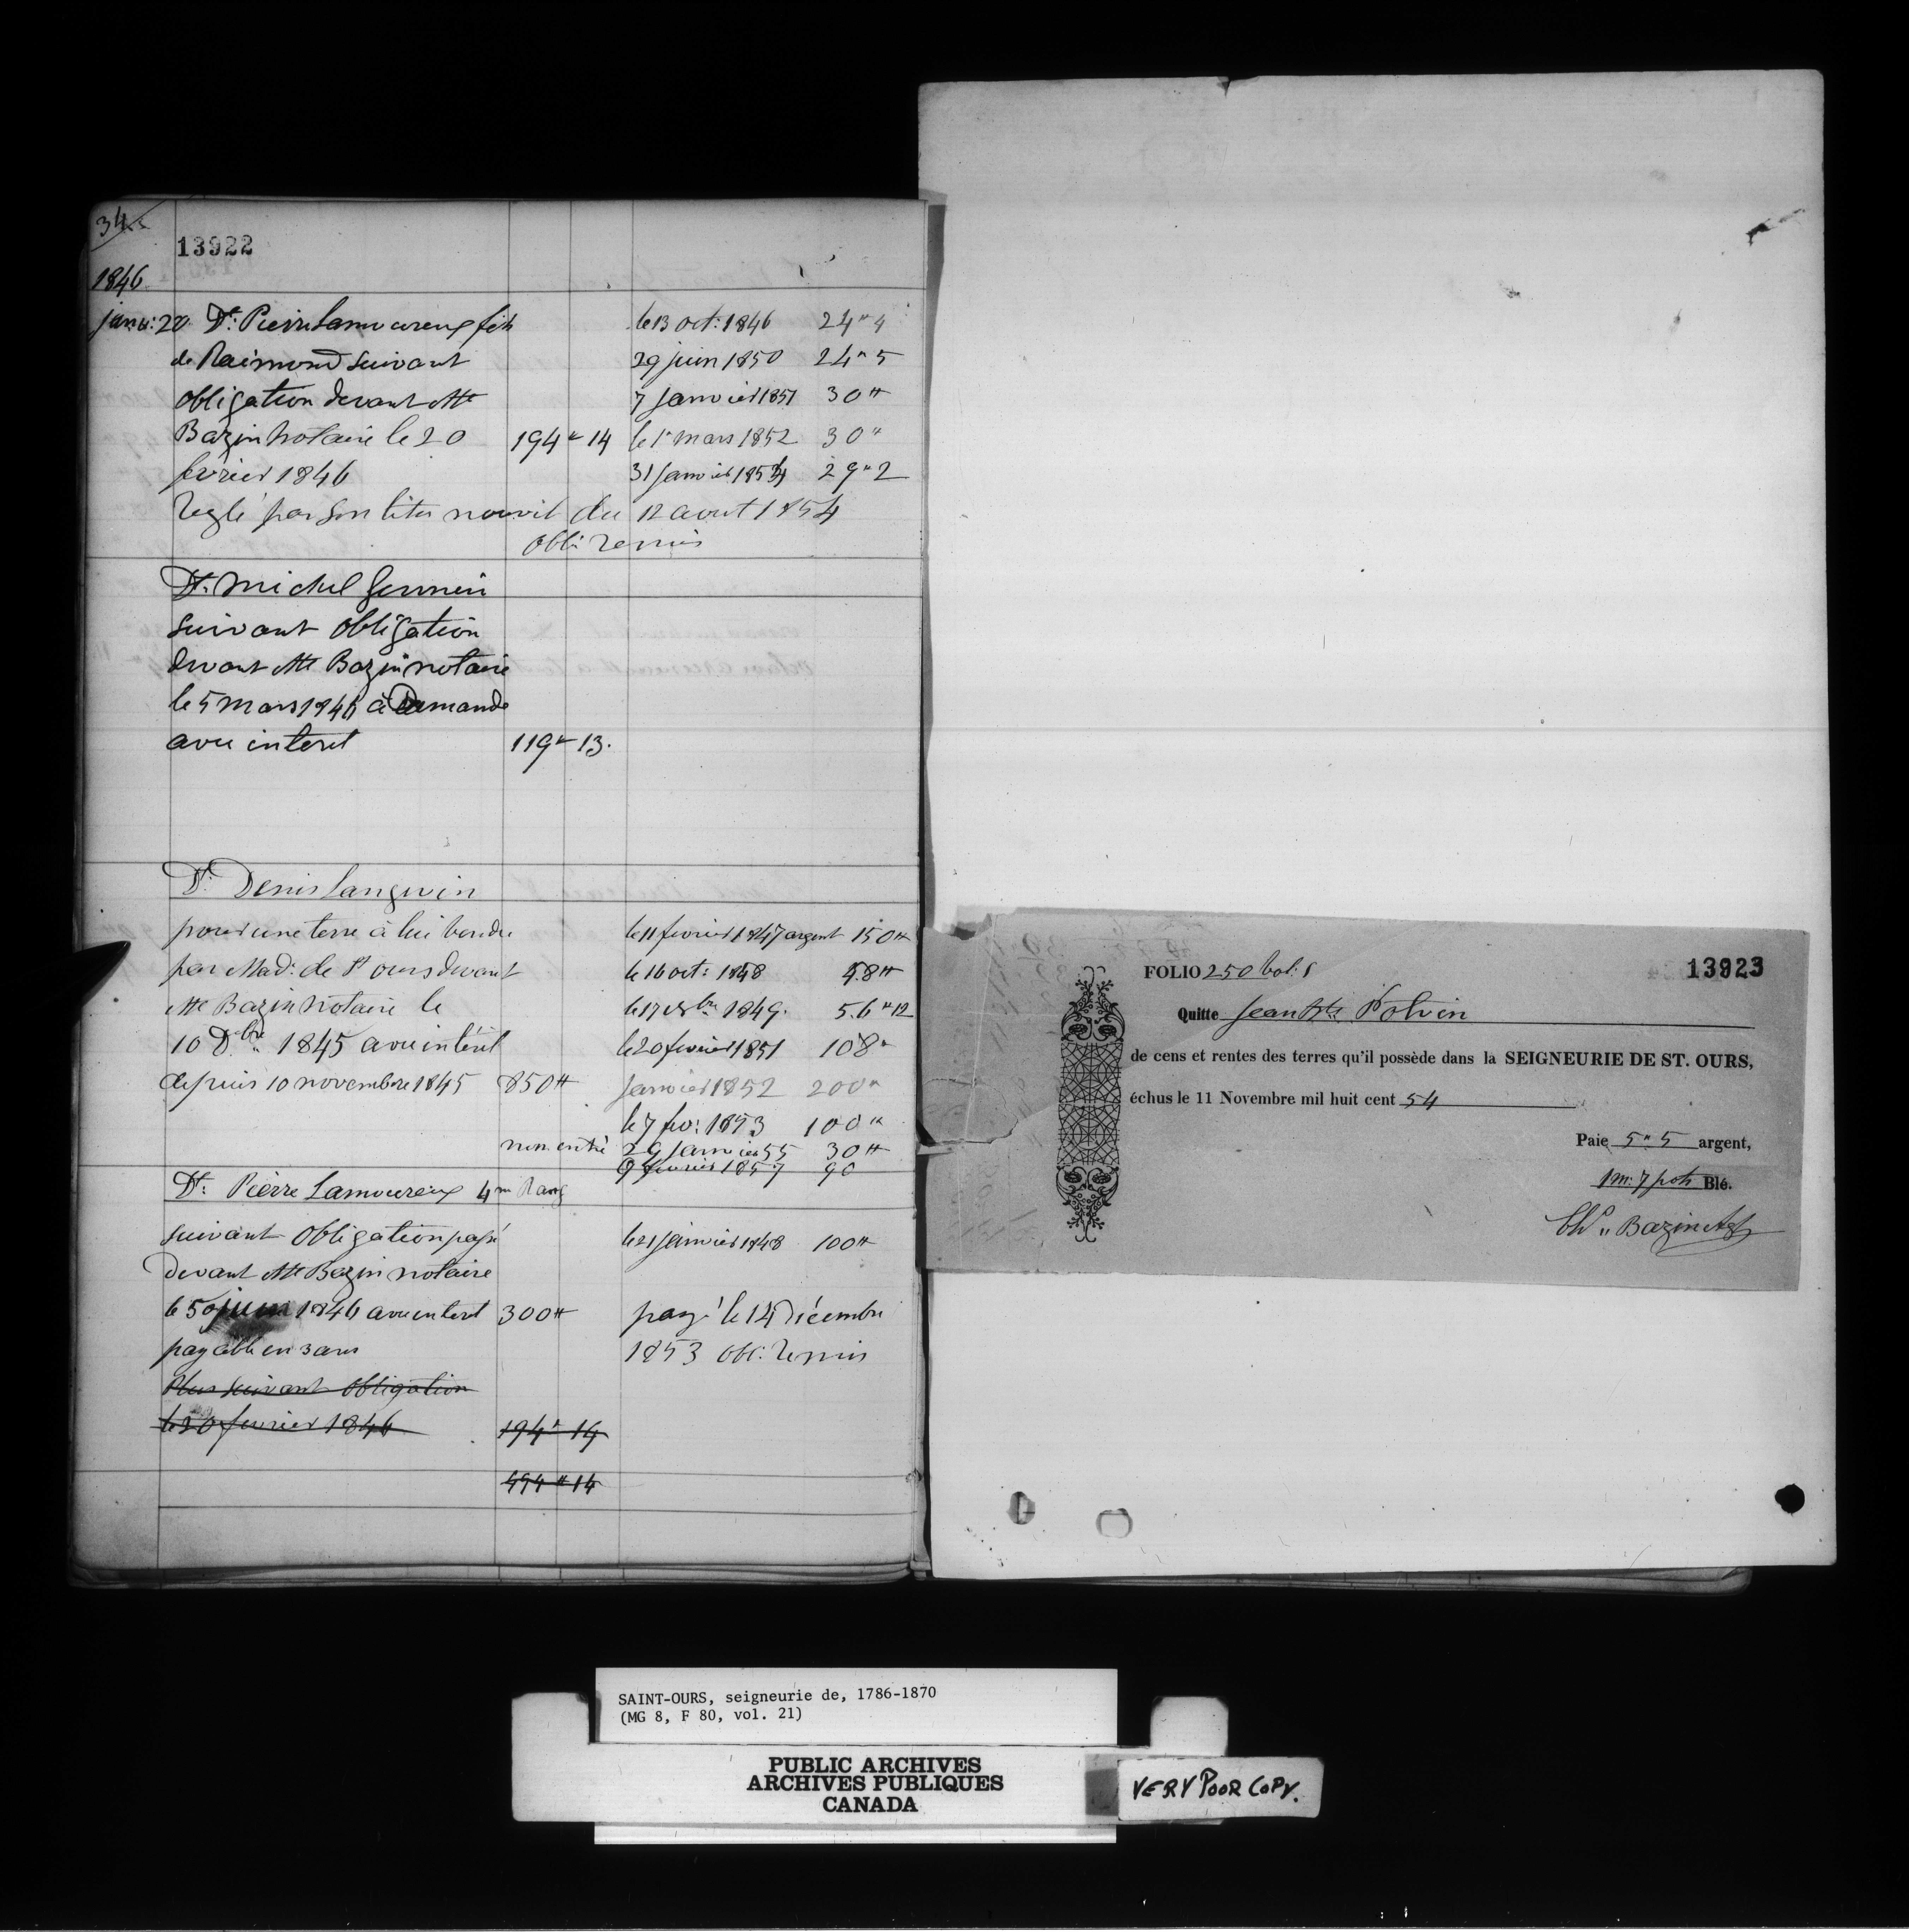 34
13922
1846
janv: 20 Dt: Pierre Lamoureux fils le 13 oct: 1846 24" 4
de Raimond suivant 29 juin 1850 24" 5
obligation devant Mtre 7 janvier 1851 30 "
Bazin Notaire le 20 194 " 14 le 1r mars 1852 30 "
fevrier 1846 31 Janvier 1854 29" 2
Reglé par son titre nouvel du 12 aout 1854
obli: remis
Dt: Michel Germain
suivant obligation
devant Mtre Bazin notaire
le 5 mars 1846 à Demande
avec interet 119 " 13.
Dt: Denis Langevin
pour une terre à lui vendu le 11 fevrier 1847 argent 150 "
par Mad: de St ours devant le 16 oct: 1848 48 "
Mtre Bazin Notaire le le 17 1849. 56 " 12
10 Dbre 1845 avec intérêt le 20 fevrier 1851 108 "
depuis 10 novembre 1845 850 " Janvier 1852 200 "
le 7 fev: 1853 100 "
non entré 29 Janvier 55 30 "
9 fevrier 1857 90
Dt: Pierre Lamoureux 4me Rang
suivant obligation passé le 21 janvier 1848 100 "
devant Mtre Bazin notaire
le 5 juin 1846 avec interet 300 " payé le 14 décembre
payable en 3 ans 1853 obl: remis
Plus suivant obligation
le 20 fevrier 1846 194 " 14
494 " 14
FOLIO 250 Vol: 1 13923
Quitte Jean Bte Potvin
de cens et rentes des terres qu'il possède dans la SEIGNEURIE DE ST. OURS,
échus le 11 Novembre mil huit cent 54
Paie 5 " 5 argent,
1 m: 7 pots Blé.
Chs " Bazin Agt
SAINT-OURS, seigneurie de, 1786-1870
(MG 8, F 80, vol. 21)
PUBLIC ARCHIVES
ARCHIVES PUBLIQUES
CANADA
VERY POOR COPY.